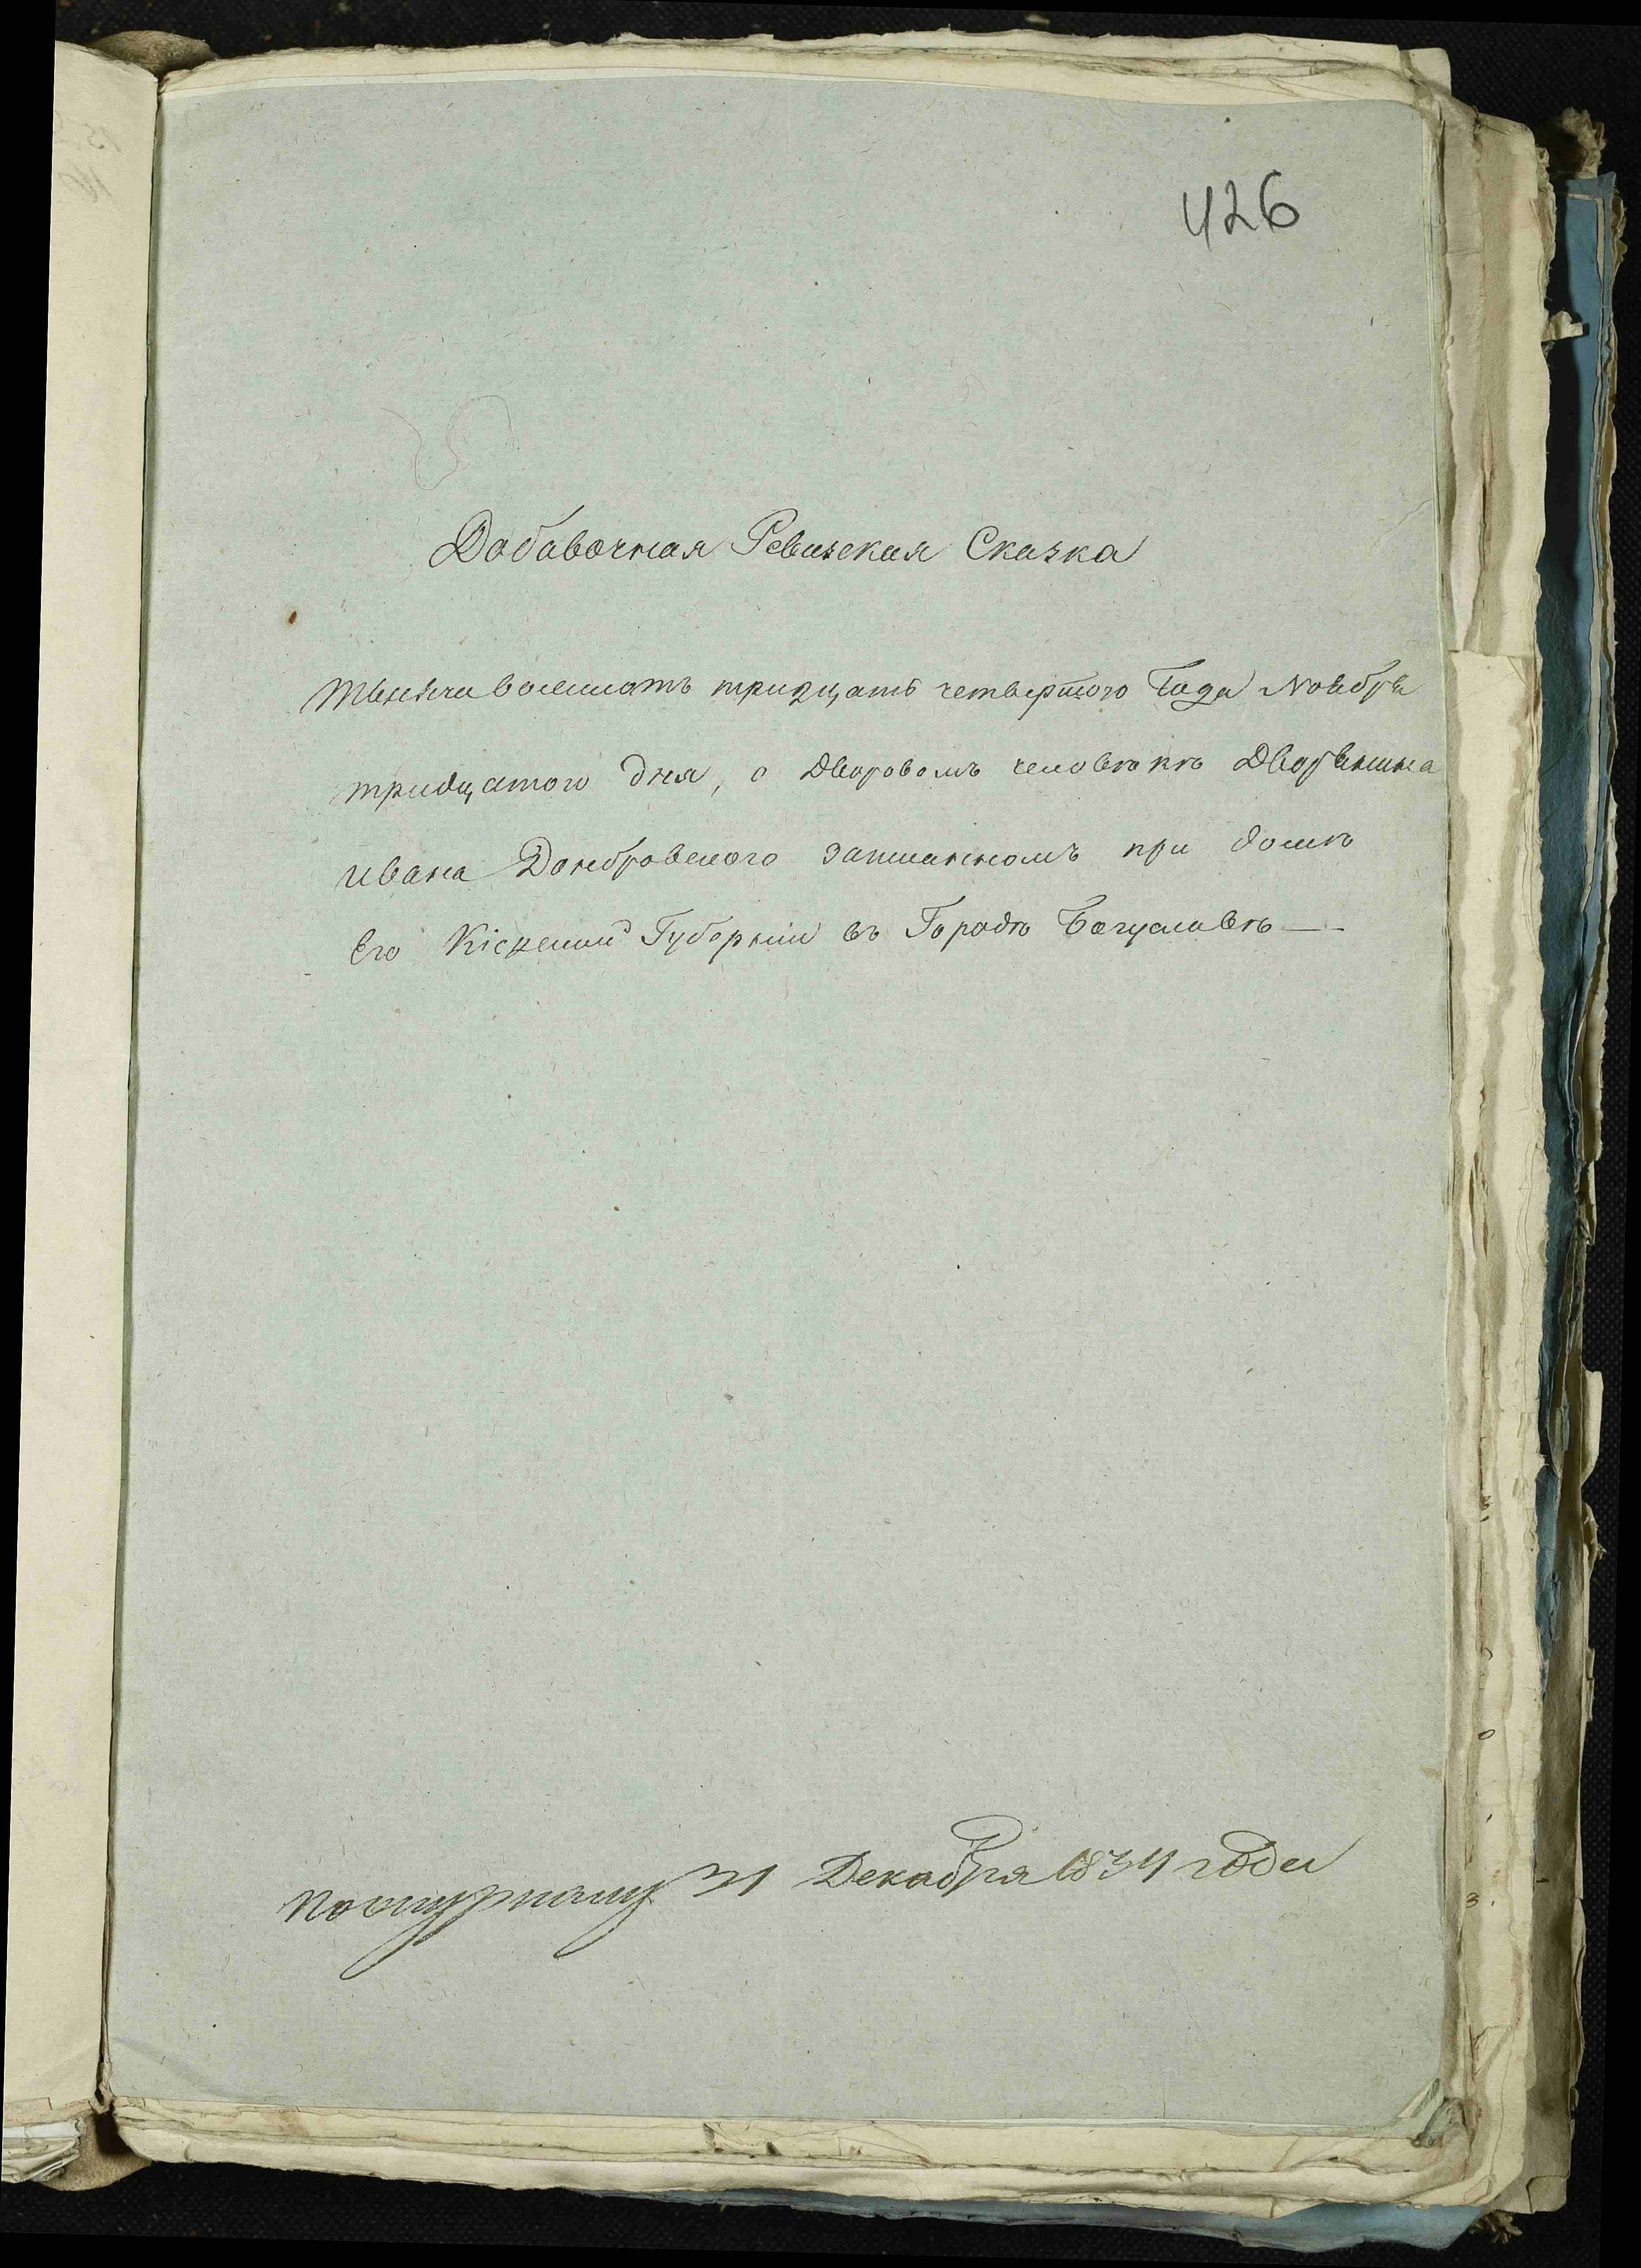 426
Добавочная Ревизская Сказка
тысяча восемсотъ тридцать четвертого Года Ноября
тридцатого дня, о Дворовомъ человѣкѣ Дворянина
Ивана Домбровского записанномъ при домѣ
Его Кіевской Губерніи въ Городѣ Богуславѣ —
31 Декабря 1834 года